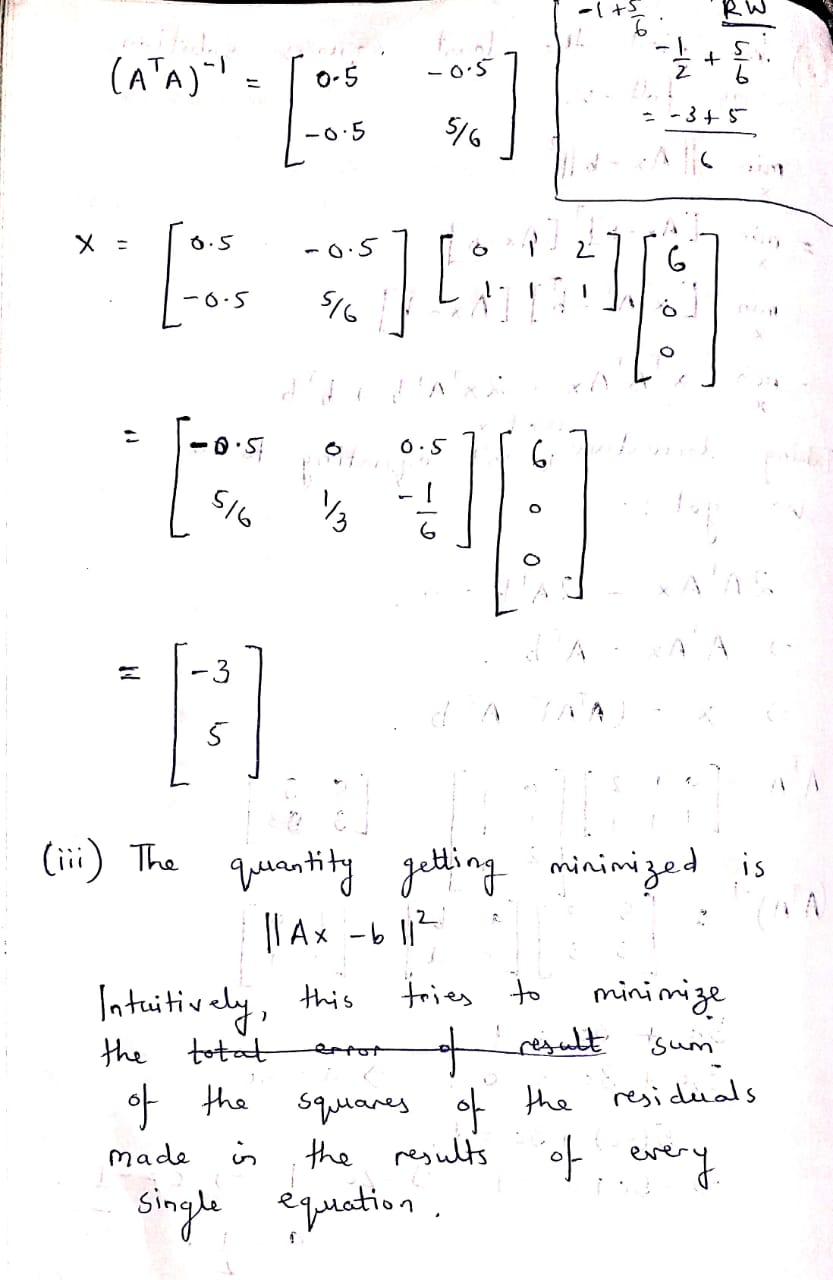 -1 + 5/6 RW
-1/2 + 5/6
= -3 + 5 / 6
(AᵀA)⁻¹ = [ 0.5 -0.5
-0.5 5/6 ]
X = [ 0.5 -0.5 ] [ 0 1 2 ] [ 6
-0.5 5/6 1 1 1 0
0 ]
= [ -0.5 0 0.5 ] [ 6
5/6 1/3 -1/6 0
0 ]
= [ -3
5 ]
(iii) The quantity getting minimized is
||Ax - b||²
Intuitively, this tries to minimize
the total error of result sum
of the squares of the residuals
made in the results of every
single equation.